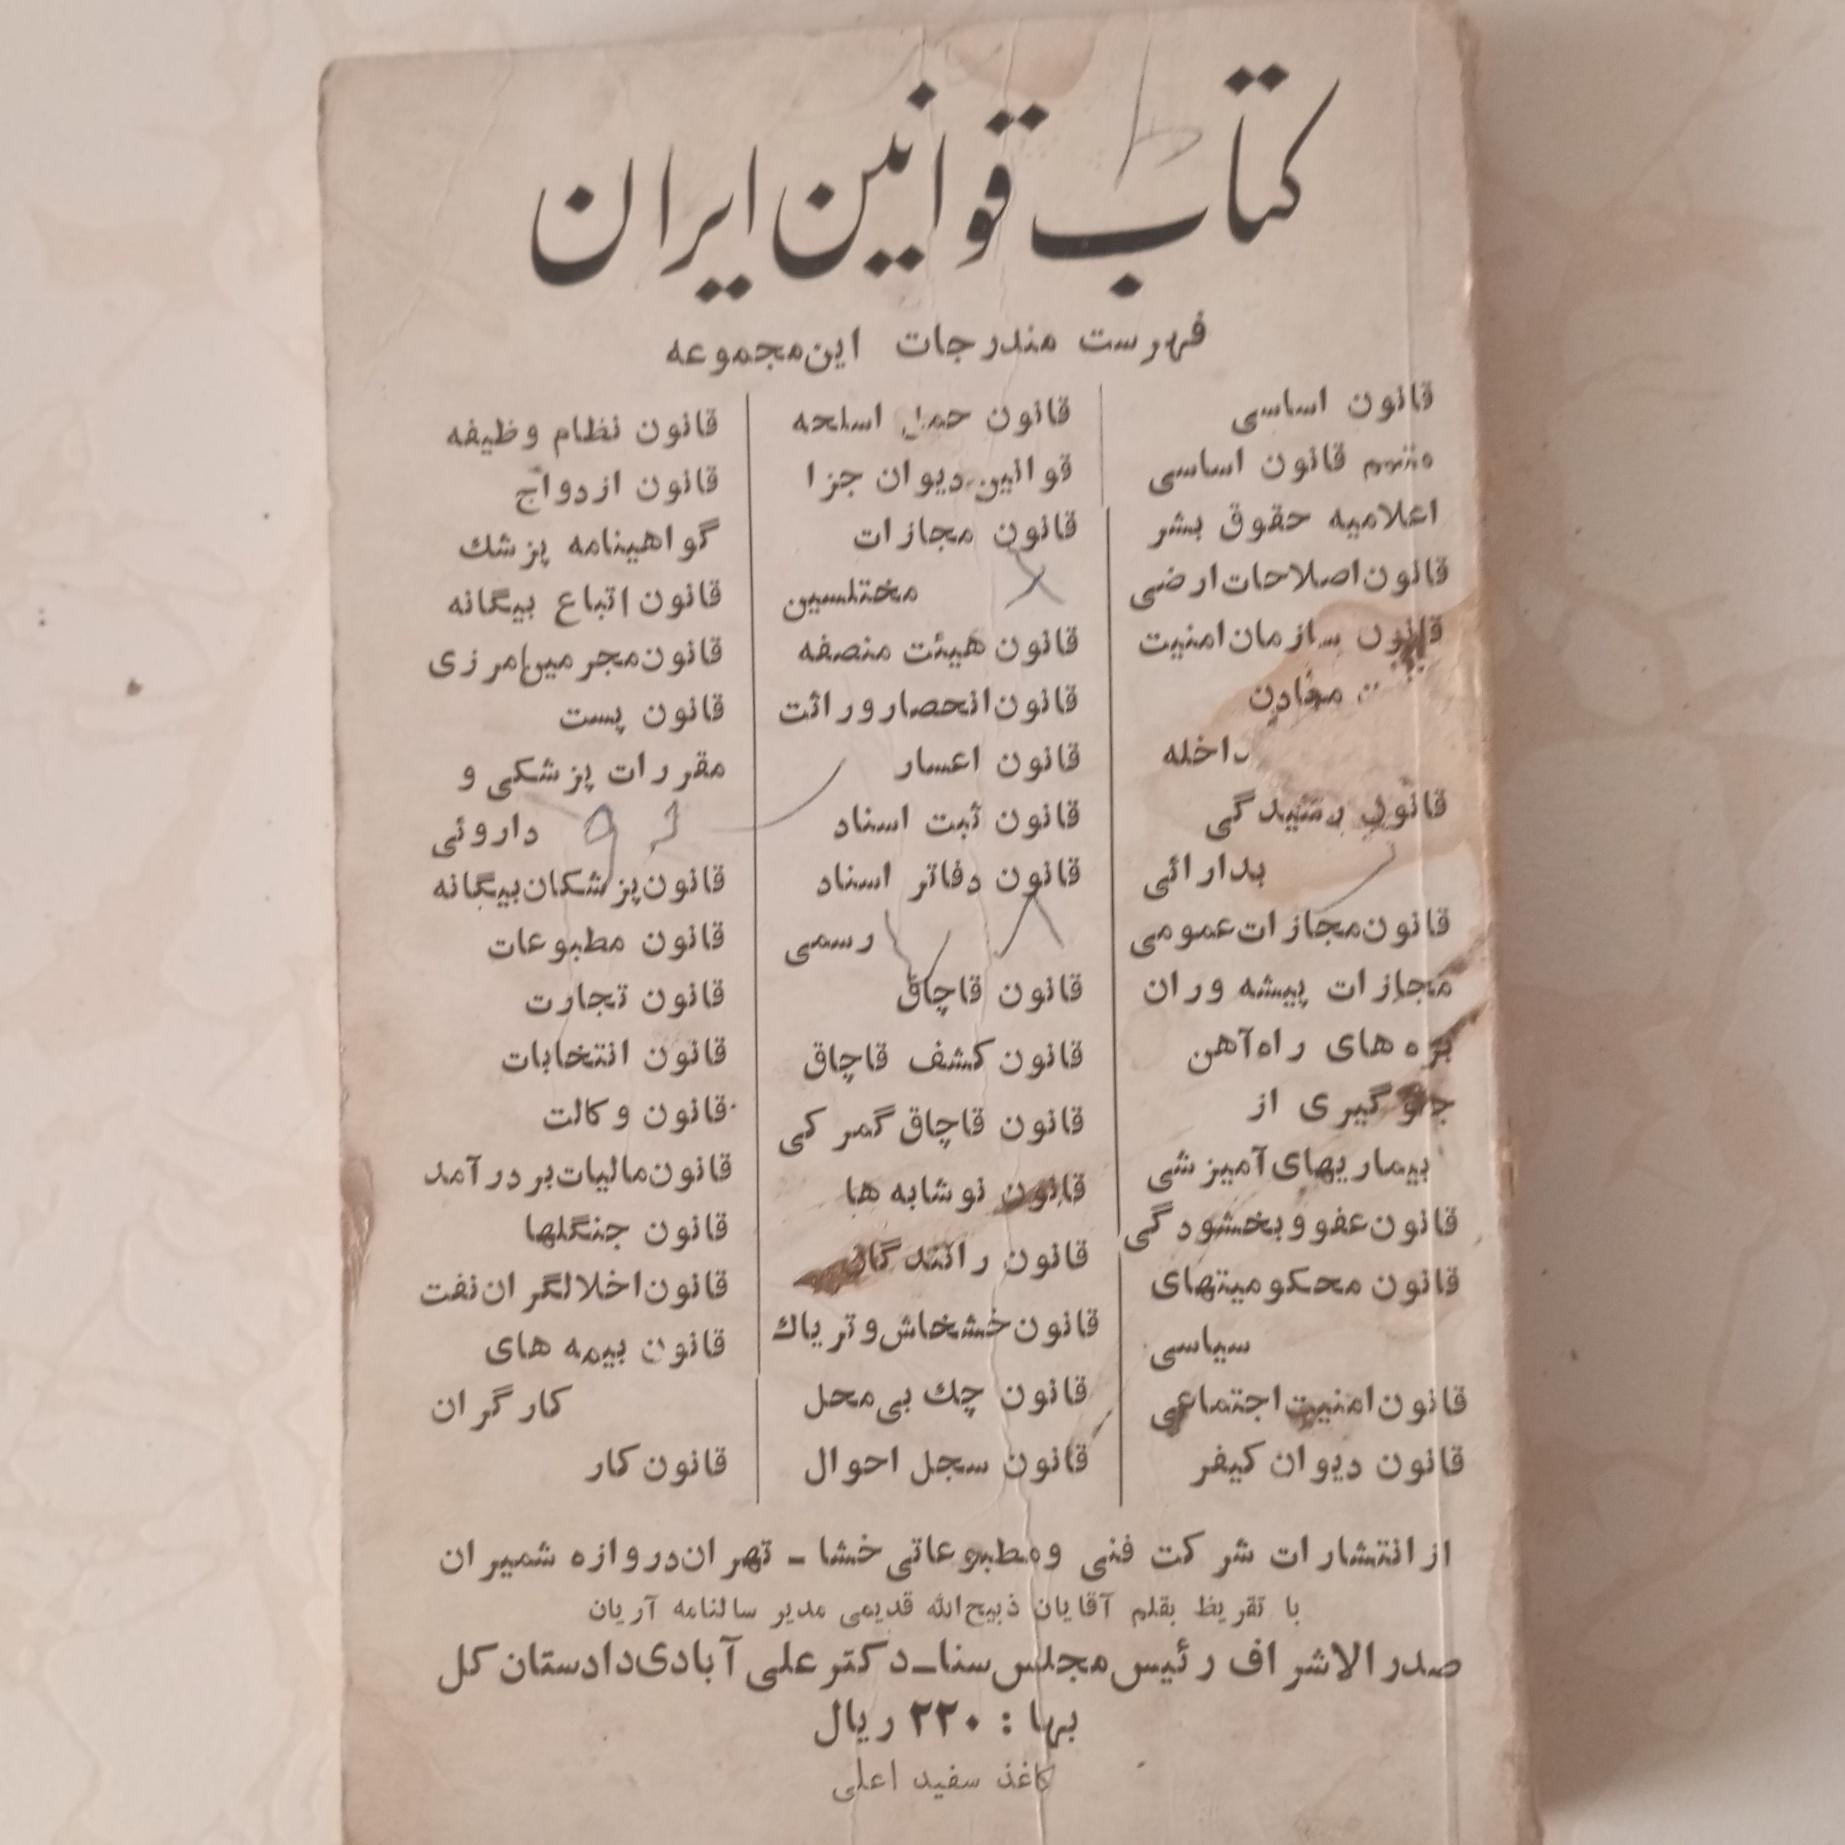 کتاب قوانین ایران
فهرست مندرجات این‌مجموعه
قانون اساسی
متمم قانون اساسی
اعلامیه حقوق بشر
قانون اصلاحات ارضی
قانون سازمان امنیت
معادن
داخله
قانون رسیدگی
بدارائی
قانون مجازات عمومی
مجازات پیشه وران
بزه های راه‌آهن
جلوگیری از
بیماریهای آمیزشی
قانون عفو و بخشودگی
قانون محکومیتهای
سیاسی
قانون امنیت اجتماعی
قانون دیوان کیفر
قانون حمل اسلحه
قوانین دیوان جزا
قانون مجازات
مختلسین
قانون هیئت منصفه
قانون انحصار وراثت
قانون اعسار
قانون ثبت اسناد
قانون دفاتر اسناد
رسمی
قانون قاچاق
قانون کشف قاچاق
قانون قاچاق گمرکی
قانون نوشابه ها
قانون رانندگان
قانون خشخاش و تریاك
قانون چك بی‌محل
قانون سجل احوال
قانون نظام وظیفه
قانون ازدواج
گواهینامه پزشك
قانون اتباع بیگانه
قانون مجرمین مرزی
قانون پست
مقررات پزشکی و
داروئی
قانون پزشکان بیگانه
قانون مطبوعات
قانون تجارت
قانون انتخابات
قانون وکالت
قانون مالیات بر درآمد
قانون جنگلها
قانون اخلالگران نفت
قانون بیمه های
کارگران
قانون کار
از انتشارات شرکت فنی و مطبوعاتی خشا ـ تهران دروازه شمیران
با تقریظ بقلم آقایان ذبیح‌الله قدیمی مدیر سالنامه آریان
صدرالاشراف رئیس مجلس سنا ـ دکتر علی آبادی دادستان کل
بها : ۲۲۰ ریال
کاغذ سفید اعلی